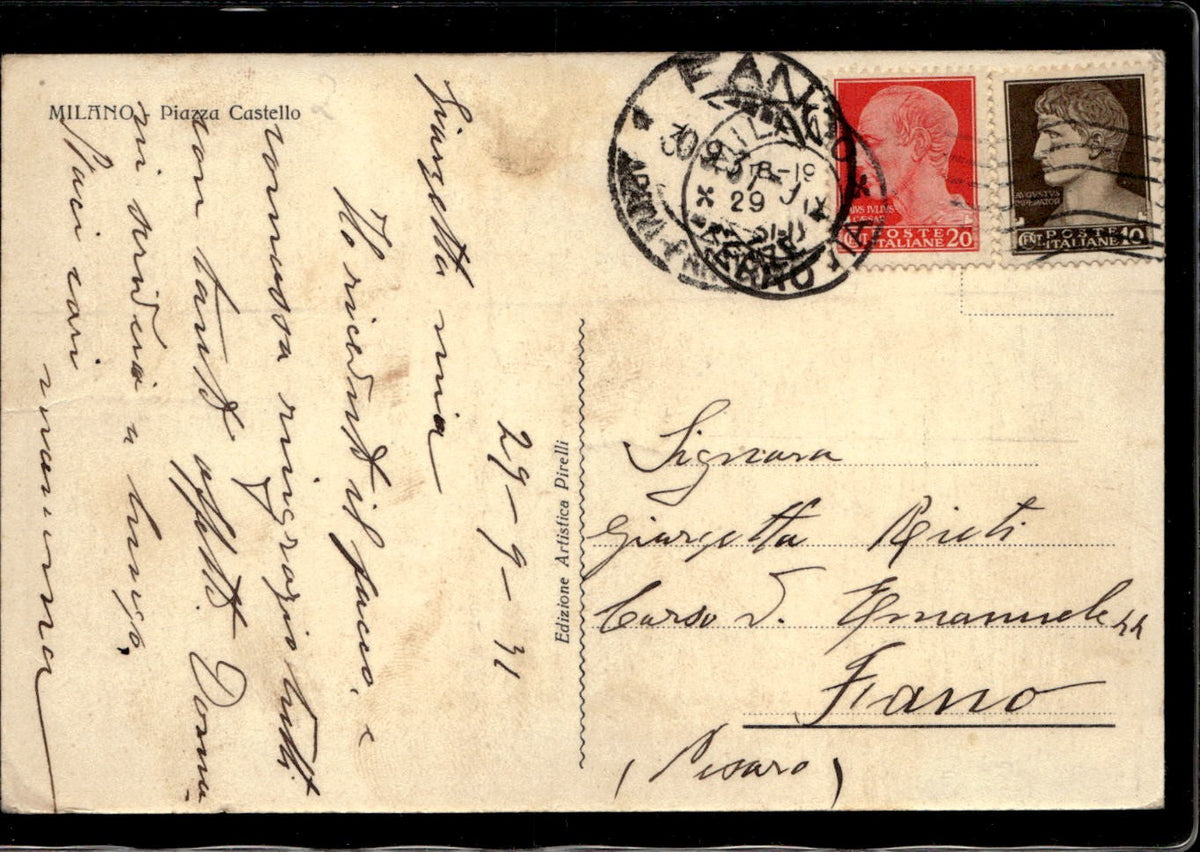 MILANO - Piazza Castello
29-9-31
Giorgetta mia
Ho ricevuto il pacco, e
commossa ringrazio tutti
con tanto affetto. Doma-
ni scriverò a lungo.
Baci cari
mamma
Edizione Artistica Pirelli
FANO
30.9.31
MILANO
18-19
29 IX
DIVUS IULIUS
CAESAR
CENT. POSTE
ITALIANE 20
AUGUSTUS
IMPERATOR
CENT. POSTE
ITALIANE 10
Signora
Giorgetta Rieti
Corso V. Emanuele 44
Fano
(Pesaro)